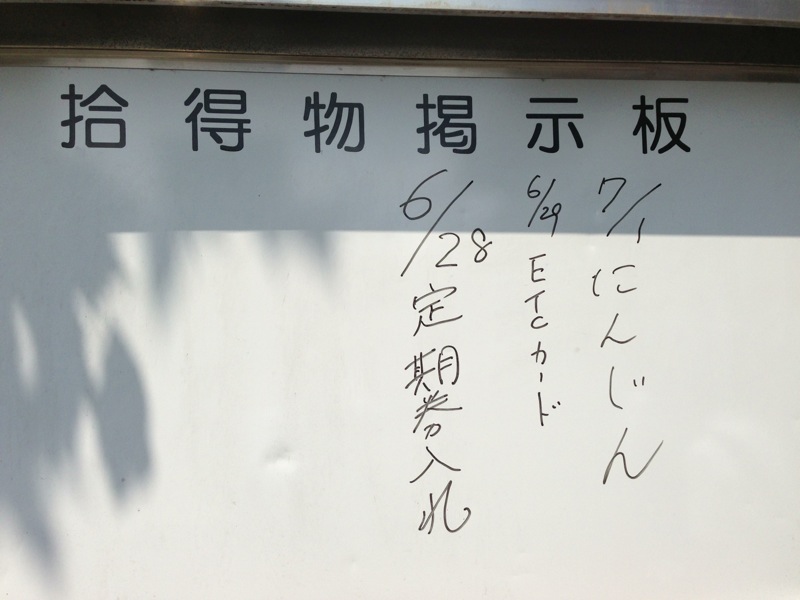 拾得物掲示板
7/1 にんじん
6/29 ETCカード
6/28 定期券入れ